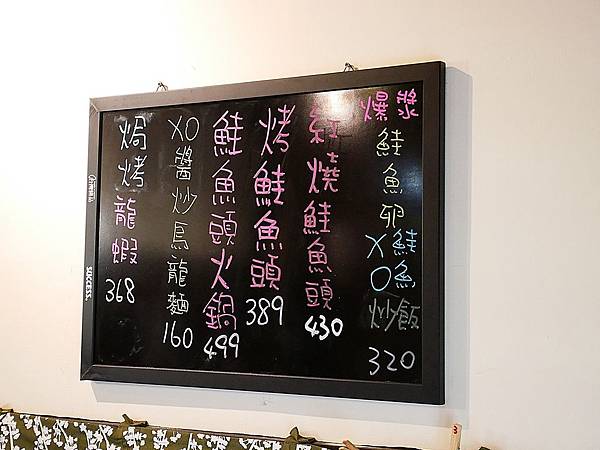 爆漿
鮭魚卵
XO鮭魚
炒飯
320
紅燒鮭魚頭
430
烤鮭魚頭
389
鮭魚頭火鍋
499
XO醬炒烏龍麵
160
焗烤龍蝦
368
SUCCESS.